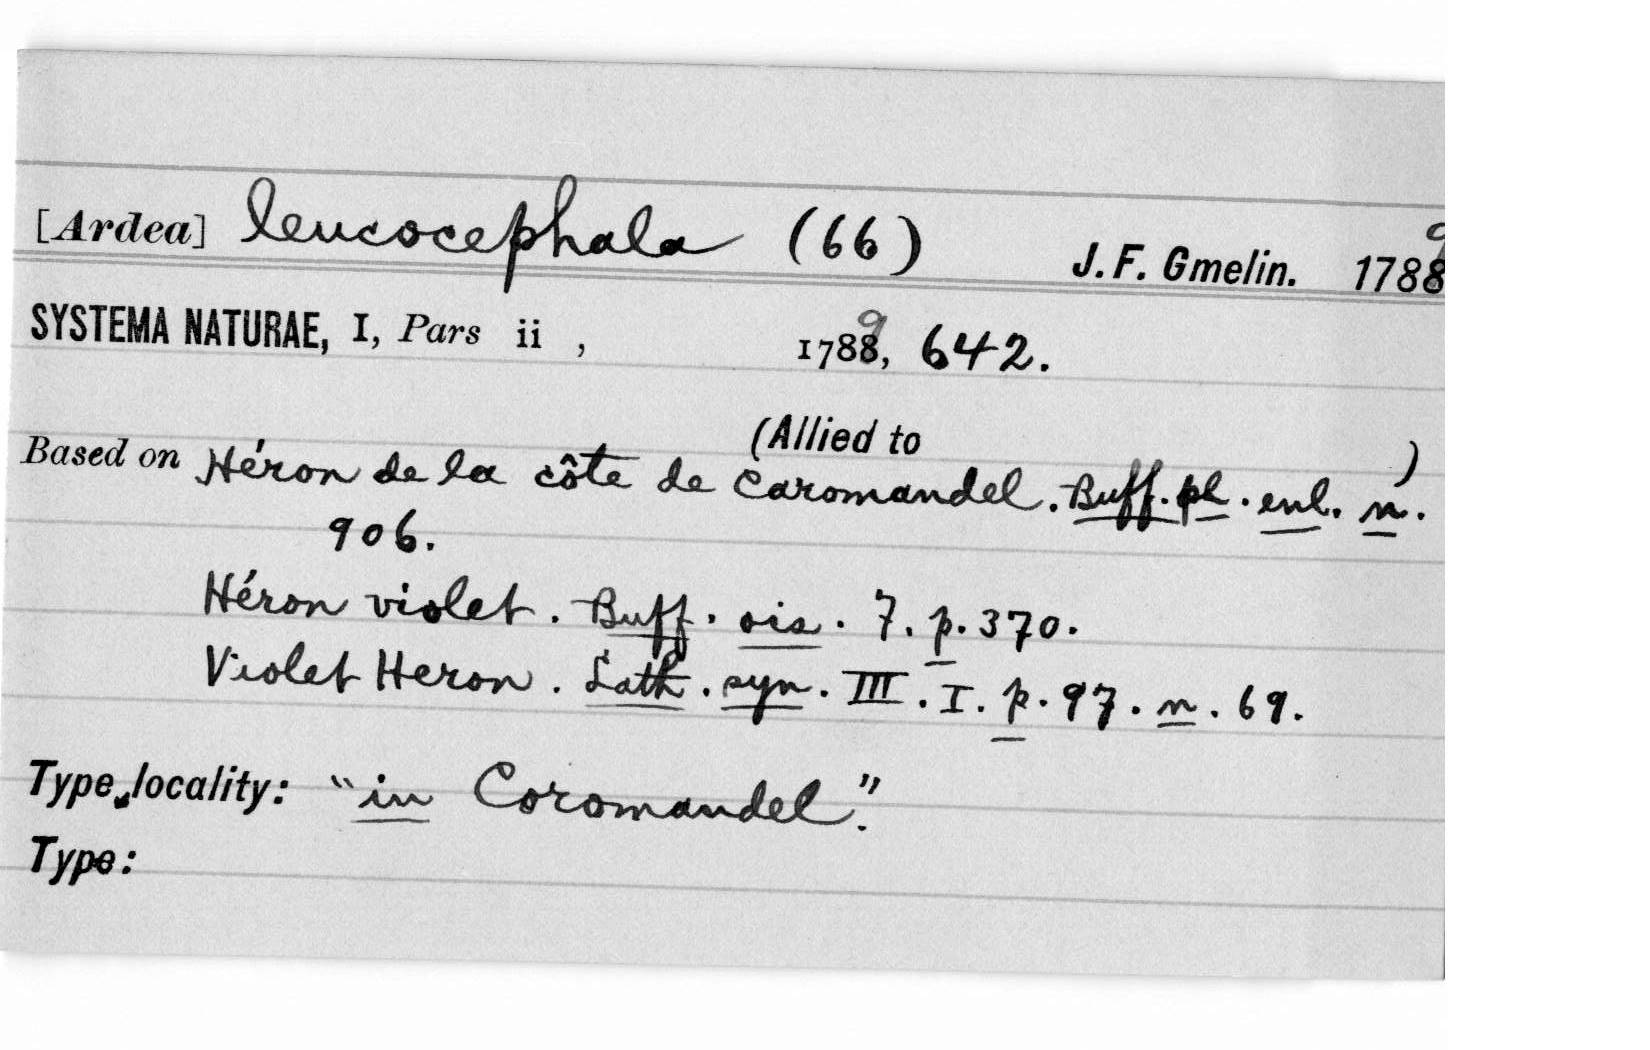 [Ardea] leucocephala (66) J. F. Gmelin. 1788 9
SYSTEMA NATURAE, I, Pars ii , 1788 9, 642.
(Allied to )
Based on Héron de la côte de Caromandel. Buff. pl. enl. n.
906.
Héron violet. Buff. ois. 7. p. 370.
Violet Heron. Lath. syn. III. I. p. 97. n. 69.
Type locality: "in Coromandel."
Type: